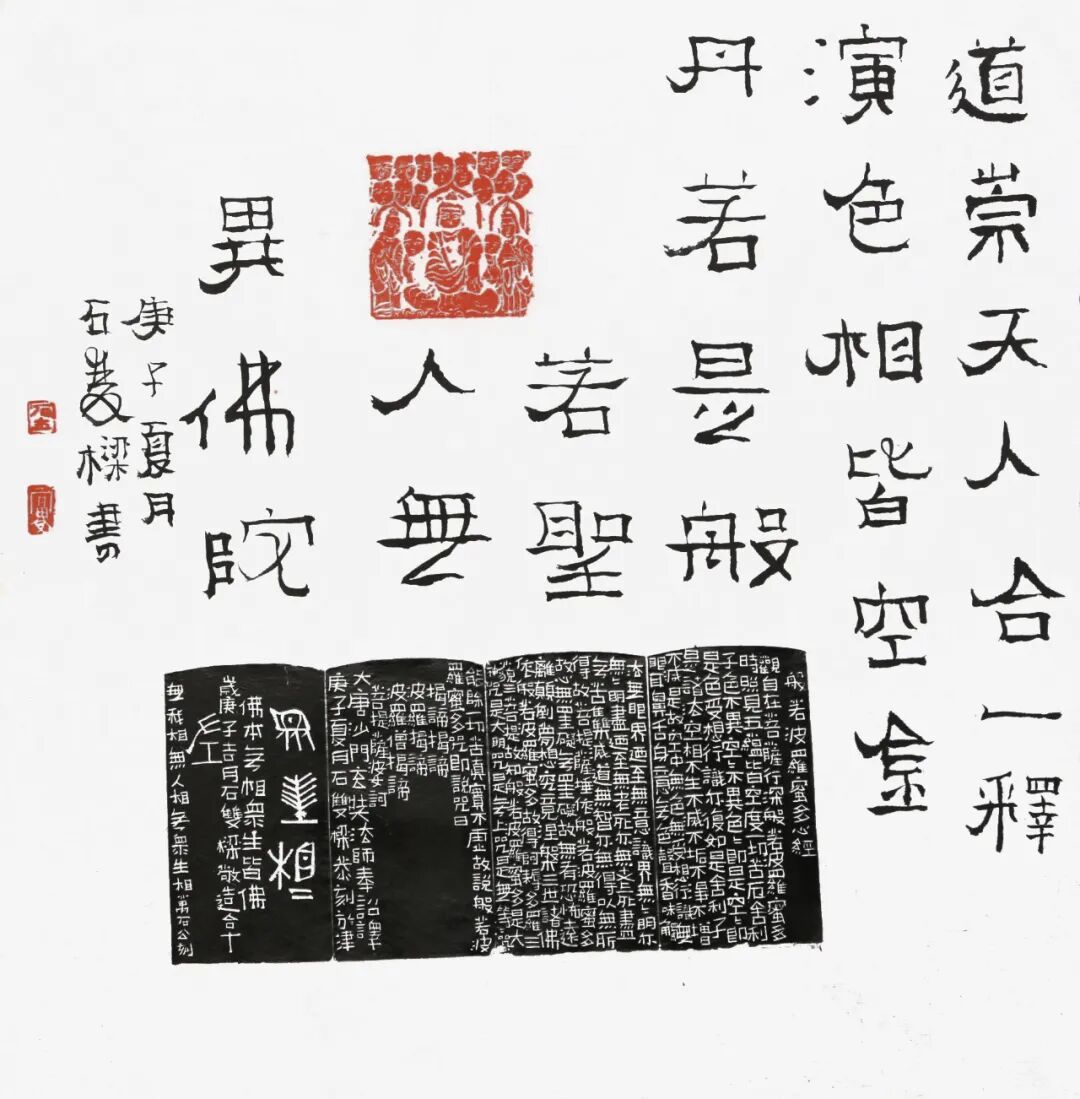 道崇天人合一釋
演色相皆空金
丹若是般
若聖
人無
異佛陀
庚子夏月
石雙樑書
般若波羅蜜多心經
觀自在菩薩行深般若波羅蜜多
時照見五蘊皆空度一切苦厄舍利
子色不異空〻不異色〻即是空〻即
是色受想行識亦復如是舍利子
是諸法空相不生不滅不垢不淨不增
不減是故空中無色無受想行識無
眼耳鼻舌身意無色聲香味觸
法無眼界乃至無意識界無〻明亦
無〻明盡乃至無老死亦無老死盡
無苦集滅道無智亦無得以無所
得故菩提薩埵依般若波羅蜜多
故心無罣礙無罣礙故無有恐怖遠
離顛倒夢想究竟涅槃三世諸佛
依般若波羅蜜多故得耨多羅三
藐三菩提故知般若波羅蜜多是大
神咒是大明咒是無上咒是無等〻咒
能除一切苦真實不虛故說般若波
羅蜜多咒即說咒曰
揭諦揭諦
波羅揭諦
波羅僧揭諦
菩提薩婆訶
大唐沙門玄奘法師奉詔譯
庚子夏月石雙樑恭刻於津
相
佛本無相衆生皆佛
歲庚子吉月石雙樑敬造合十
無我相無人相無衆生相萬石公刻